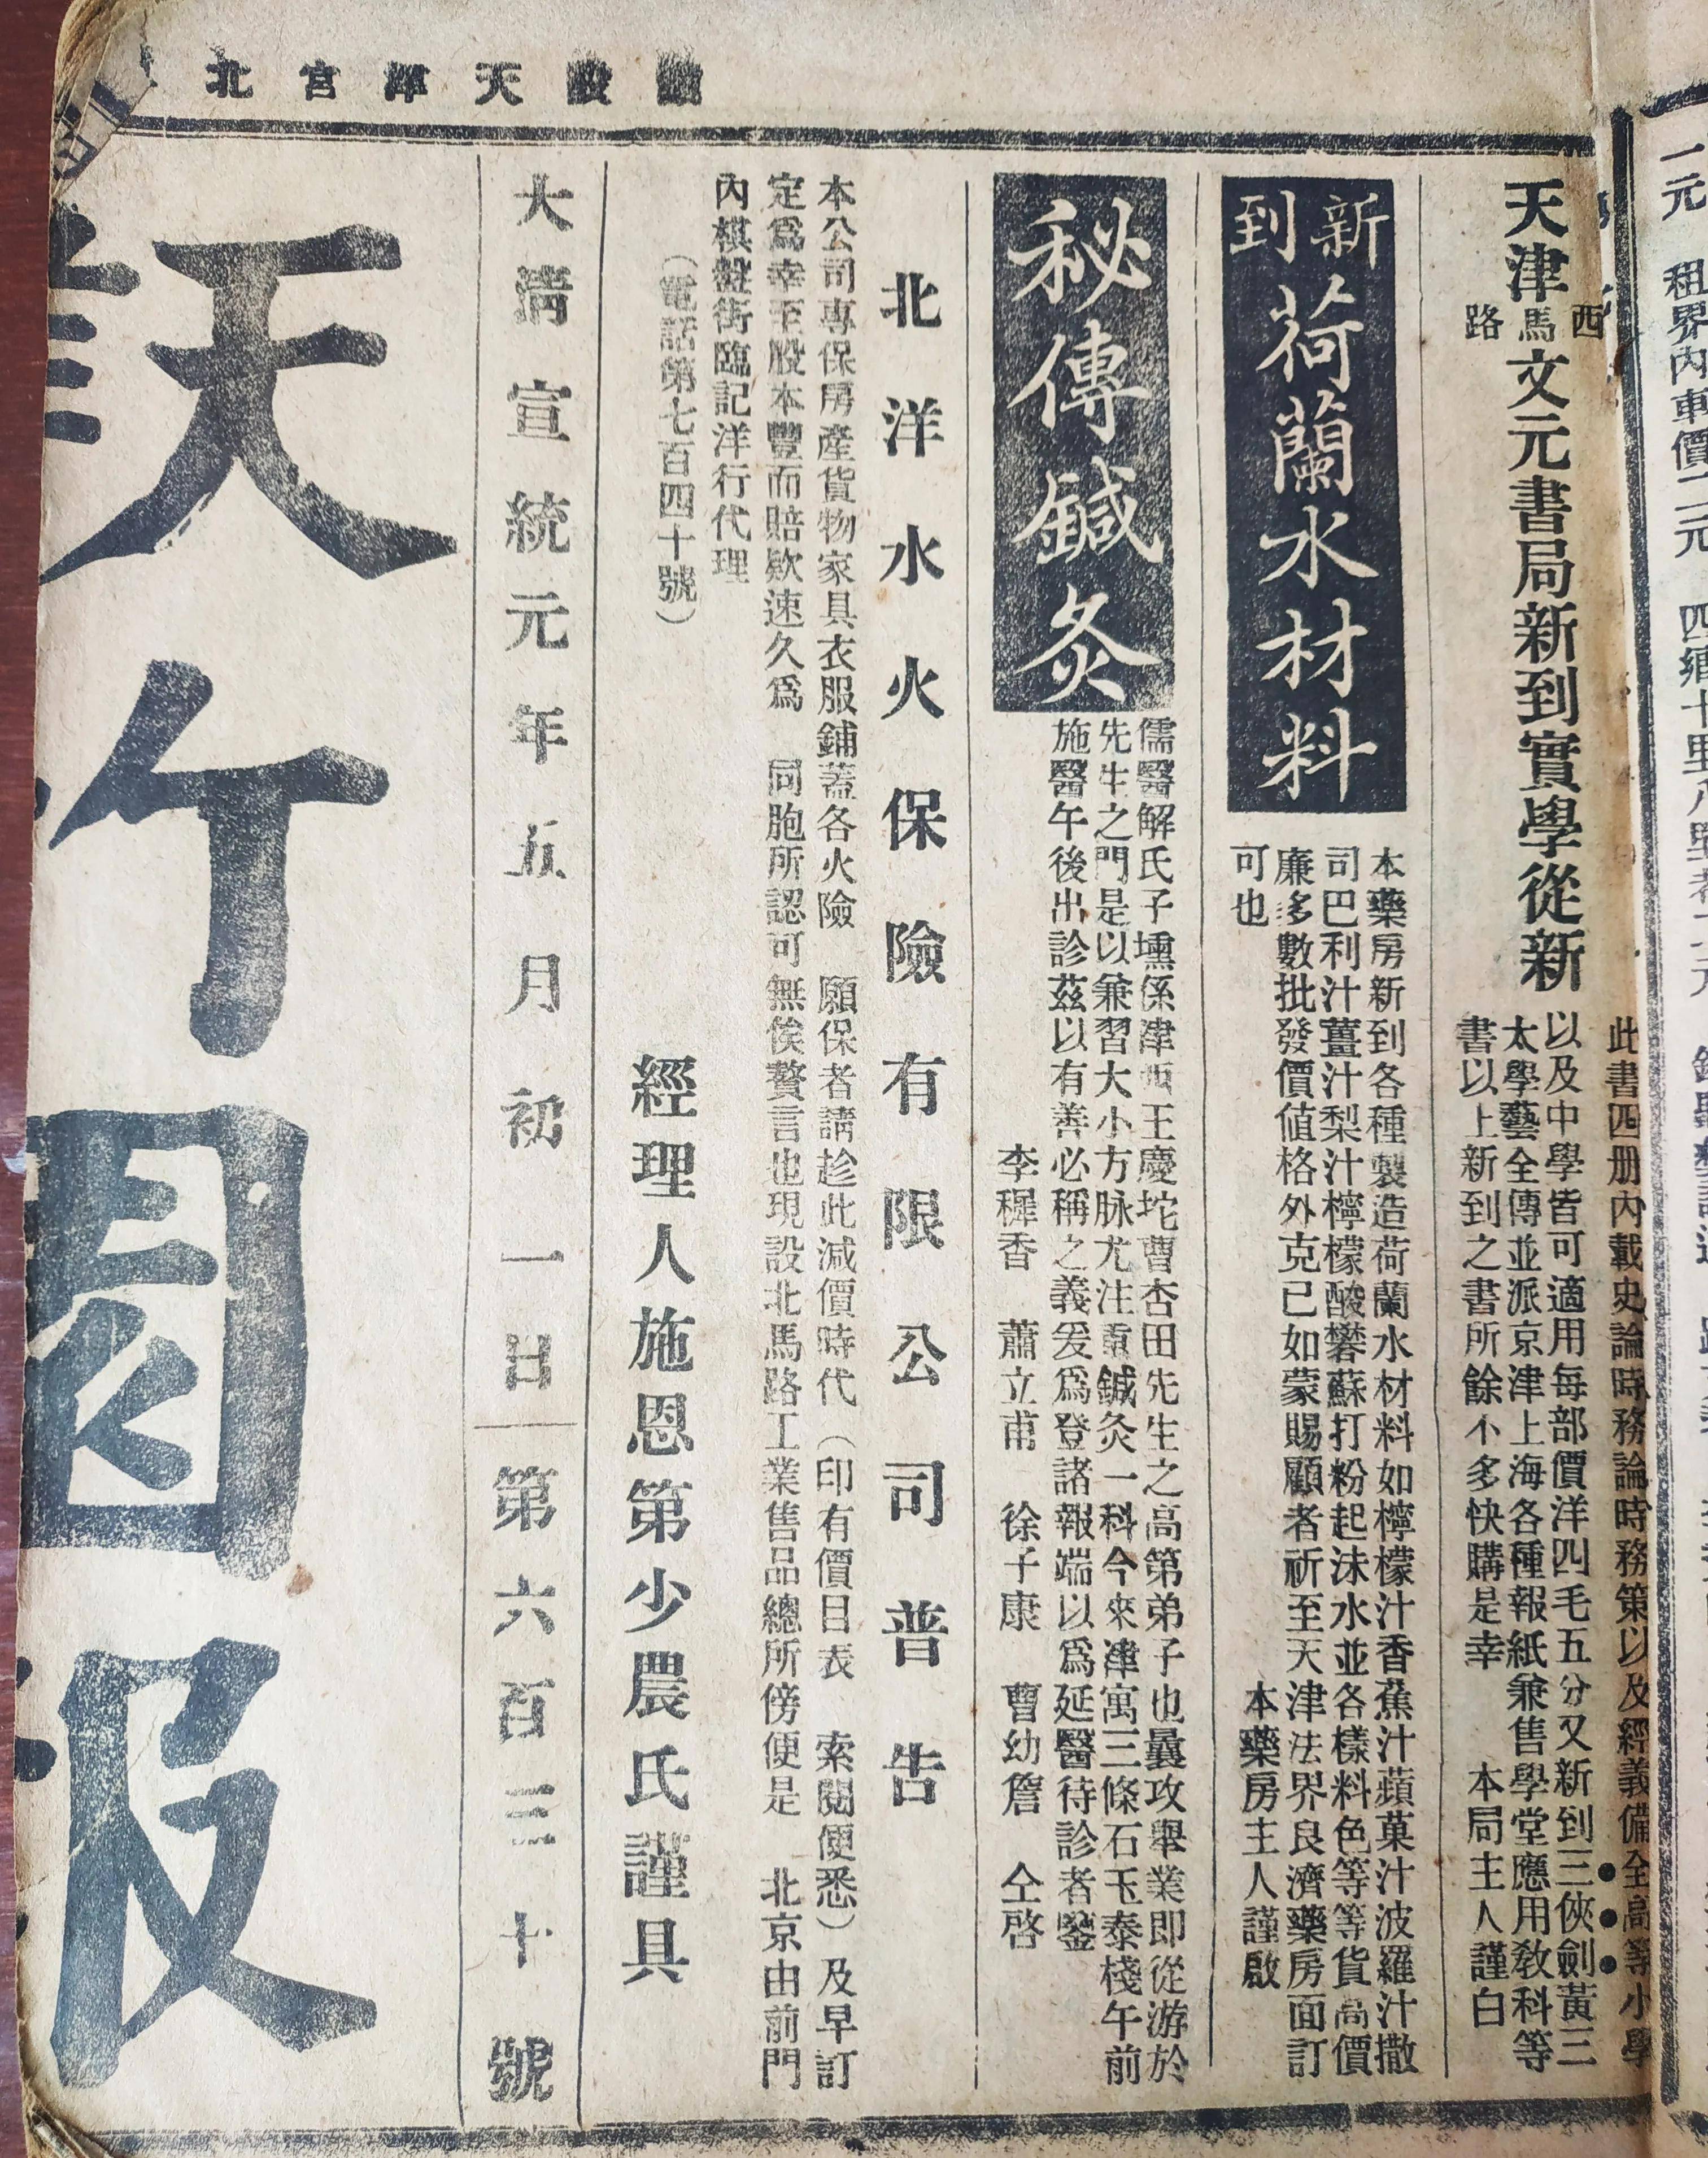 天津西馬路文元書局新到實學從新
此書四册內載史論時務論時務策以及經義備全高等小學
以及中學皆可適用每部價洋四毛五分又新到三俠劍黃三
太學藝全傳並派京津上海各種報紙兼售學堂應用教科等
書以上新到之書所餘不多快購是幸　本局主人謹白
新到荷蘭水材料
本藥房新到各種製造荷蘭水材料如檸檬汁香蕉汁蘋菓汁波羅汁撒
司巴利汁薑汁梨汁檸檬酸礬蘇打粉起沫水並各樣料色等等貨高價
廉多數批發價值格外克己如蒙賜顧者祈至天津法界良濟藥房面訂
可也　本藥房主人謹啟
秘傳鍼灸
儒醫解氏子壎係津西王慶坨曹杏田先生之高第弟子也曩攻舉業即從游於
先生之門是以兼習大小方脉尤注重鍼灸一科今來津寓三條石玉泰棧午前
施醫午後出診茲以有善必稱之義爰爲登諸報端以爲延醫待診者鑒
李穉香　蕭立甫　徐子康　曹幼詹　仝啓
北洋水火保險有限公司普告
本公司專保房產貨物家具衣服鋪蓋各火險　願保者請趁此減價時代（印有價目表　索閱便悉）及早訂
定爲幸至股本豐而賠欵速久爲　同胞所認可無俟贅言也現設北馬路工業售品總所傍便是　北京由前門
內棋盤街臨記洋行代理
（電話第七百四十號）
經理人施恩第少農氏謹具
大清宣統元年五月初一日
第六百三十號
北宮津天設